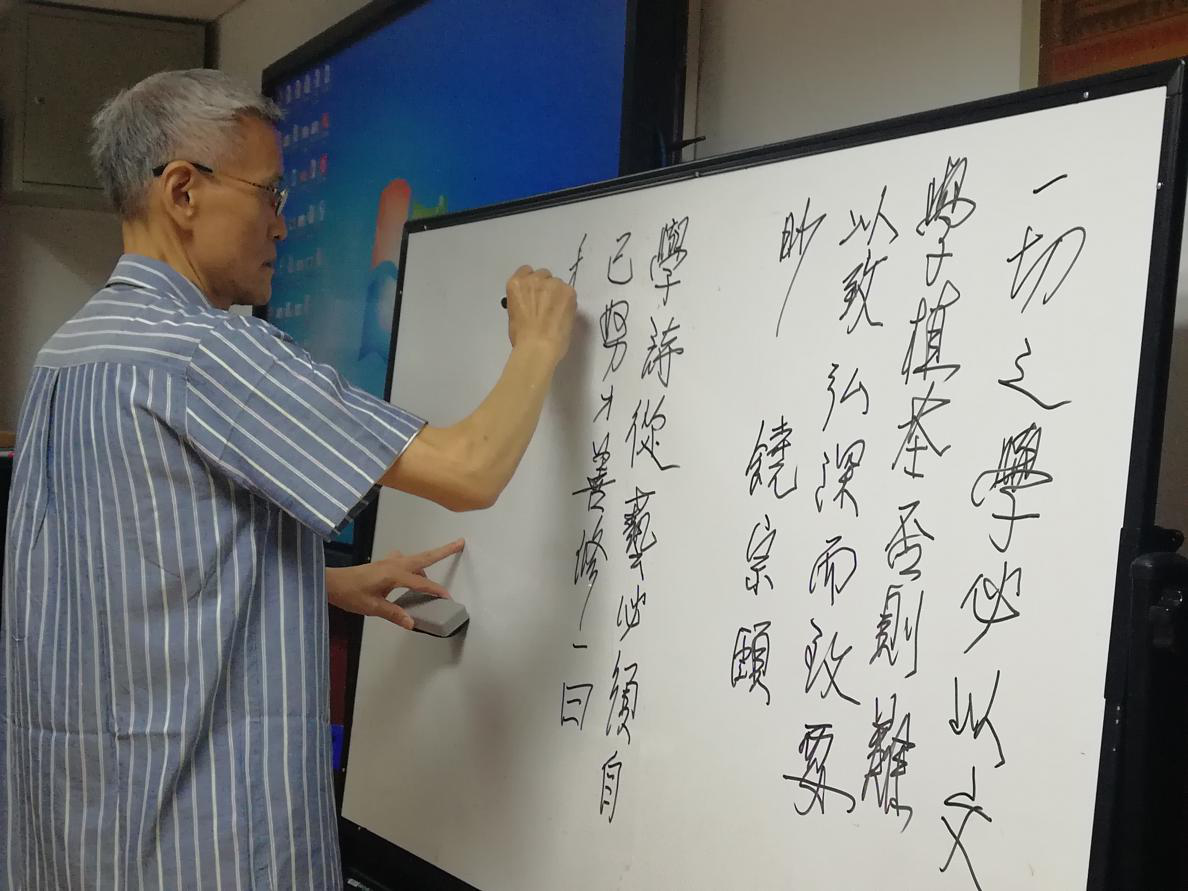 一切之學必以文
學植基否則難
以致弘深而致要
眇
饒宗頤
學詩從藝必須自
己善修一日